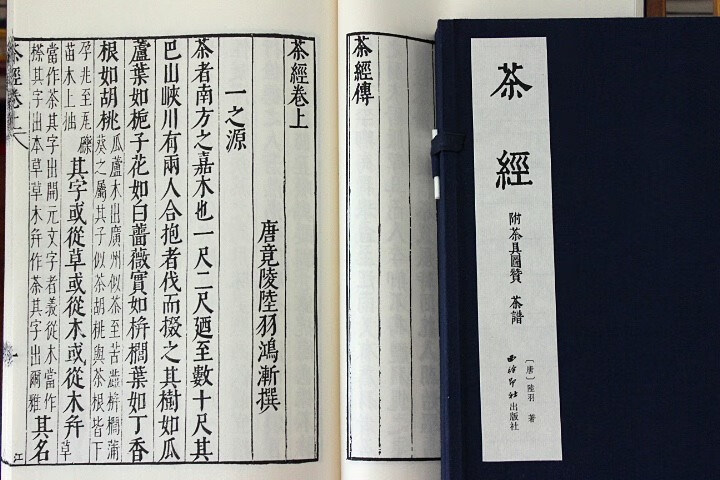 茶經
附茶具圖贊 茶譜
〔唐〕陸羽 著
西泠印社出版社
茶經傳
茶經卷上
唐竟陵陸羽鴻漸撰
一之源
茶者南方之嘉木也一尺二尺廼至數十尺其
巴山峽川有兩人合抱者伐而掇之其樹如瓜
蘆葉如梔子花如白薔薇實如栟櫚葉如丁香
根如胡桃
瓜蘆木出廣州似茶至苦澁栟櫚蒲
葵之屬其子似茶胡桃與茶根皆下
孕兆至瓦礫
苗木上抽
其字或從草或從木或從木弁
草
當作茶其字出開元文字者義從木當作
搽其字出本草草木弁作茶其字出爾雅
其名
茶經卷上
江